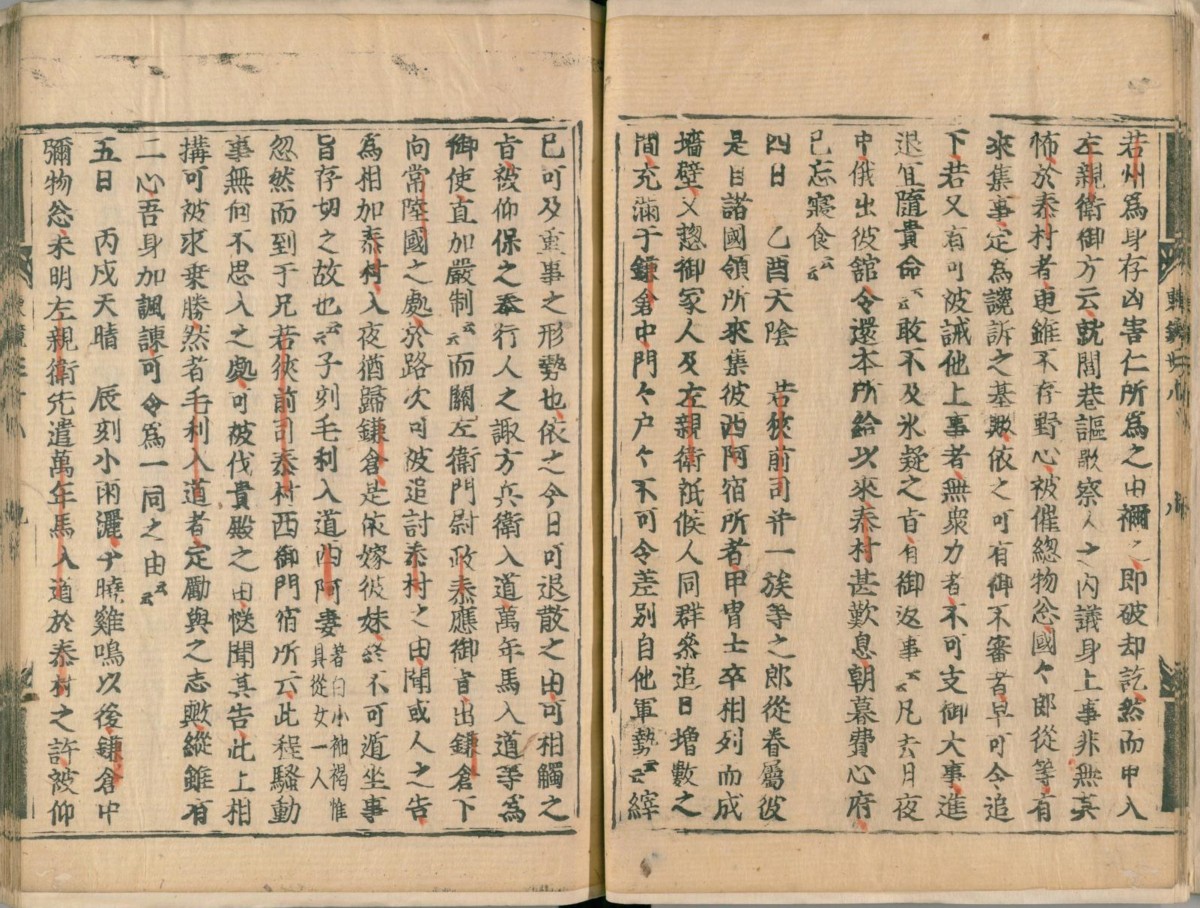 若州爲身存凶害仁所爲之由稱之即破却訖然而申入
左親衛御方云就閭巷謳歌察人之內議身上事非無其
怖於泰村者更雖不存野心被催總物忩國々郎從等有
來集事定爲讒訴之基歟依之可有仰不審者早可令追
下若又有可被誡他上事者無衆力者不可支御大事進
退宜隨貴命云云敢不及氷疑之旨有御返事云云凡去月夜
中俄出彼舘令還本所給以來泰村甚歎息朝暮費心府
已忘寢食云云
四日　乙酉天陰　若狹前司并一族等之郎從眷屬彼
是自諸國領所來集彼西阿宿所者甲冑士卒相列而成
墻壁又惣御家人及左親衛祗候人同群參追日增數之
間充滿于鎌倉中門々户々不可令差別自他軍勢云云縡
已可及重事之形勢也依之今日可退散之由可相觸之
旨被仰保之奉行人之諏方兵衛入道萬年馬入道等爲
御使直加嚴制云云而關左衛門尉政泰應御旨出鎌倉下
向常陸國之處於路次可被追討泰村之由聞或人之告
爲相加泰村入夜猶歸鎌倉是依嫁彼妹終不可遁坐事
旨存切之故也云云子刻毛利入道西阿妻著白小袖褐惟具從女一人
忽然而到于兄若狹前司泰村西御門宿所云此程騷動
事無何不思入之處可被伐貴殿之由慥聞其告此上相
搆可被求乗勝然者毛利入道者定勵與之志歟縱雖有
二心吾身加諷諫可令爲一同之由云云
五日　丙戌天晴　辰刻小雨灑于曉雞鳴以後鎌倉中
彌物忩未明左親衛先遣萬年馬入道於泰村之許被仰